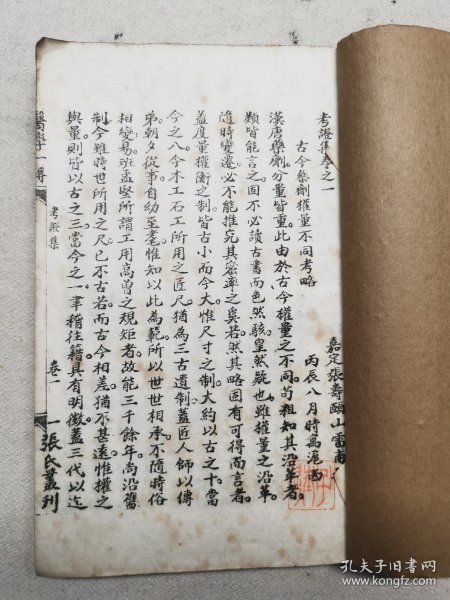 考證集卷之一
嘉定張壽頤山雷甫
古今藥劑權量不同考略
丙辰八月時寓滬西
漢唐藥劑。分量皆重。此由於古今權量之不同。苟粗知其沿革者。
類皆能言之。固不必讀古書而色然駭。皇然疑也。雖權量之沿革。
隨時變遷。必不能推究其密率之奚若。然其略固有可得而言者。
蓋度量權衡之制。皆古小而今大。惟尺寸之制。大約以古之十。當
今之八。今木工石工所用之匠尺。猶為三古遺制。蓋匠人師以傳
弟。朝夕從事。自幼至耄。惟知以此為範。所以世世相承。不隨時俗
相變易。班孟堅所謂工用高曾之規矩者。故能三千餘年。尚沿舊
制。今雖時世所用之尺。已不古若。而古今相差。猶不甚遠。惟權之
與量。則皆以古之三。當今之一。聿稽往籍。具有明徵。蓋三代以迄
考證集
卷一
張氏叢刊
孔夫子旧书网
www.kongfz.com